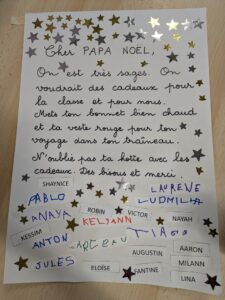 Cher PAPA NOËL,
On est très sages. On
voudrait des cadeaux pour
la classe et pour nous.
Mets ton bonnet bien chaud
et ta veste rouge pour ton
voyage dans ton traîneau.
N'oublie pas ta hotte avec les
cadeaux. Des bisous et merci.
SHAYNICE
LAURENE
PABLO
LUDMILA
ROBIN
VICTOR
ANAYA
KELYANN
NAYAH
KESSIM
TIAGO
ANTON
AARON
AUGUSTIN
JULES
MILANN
ELOÏSE
FANTINE
LINA